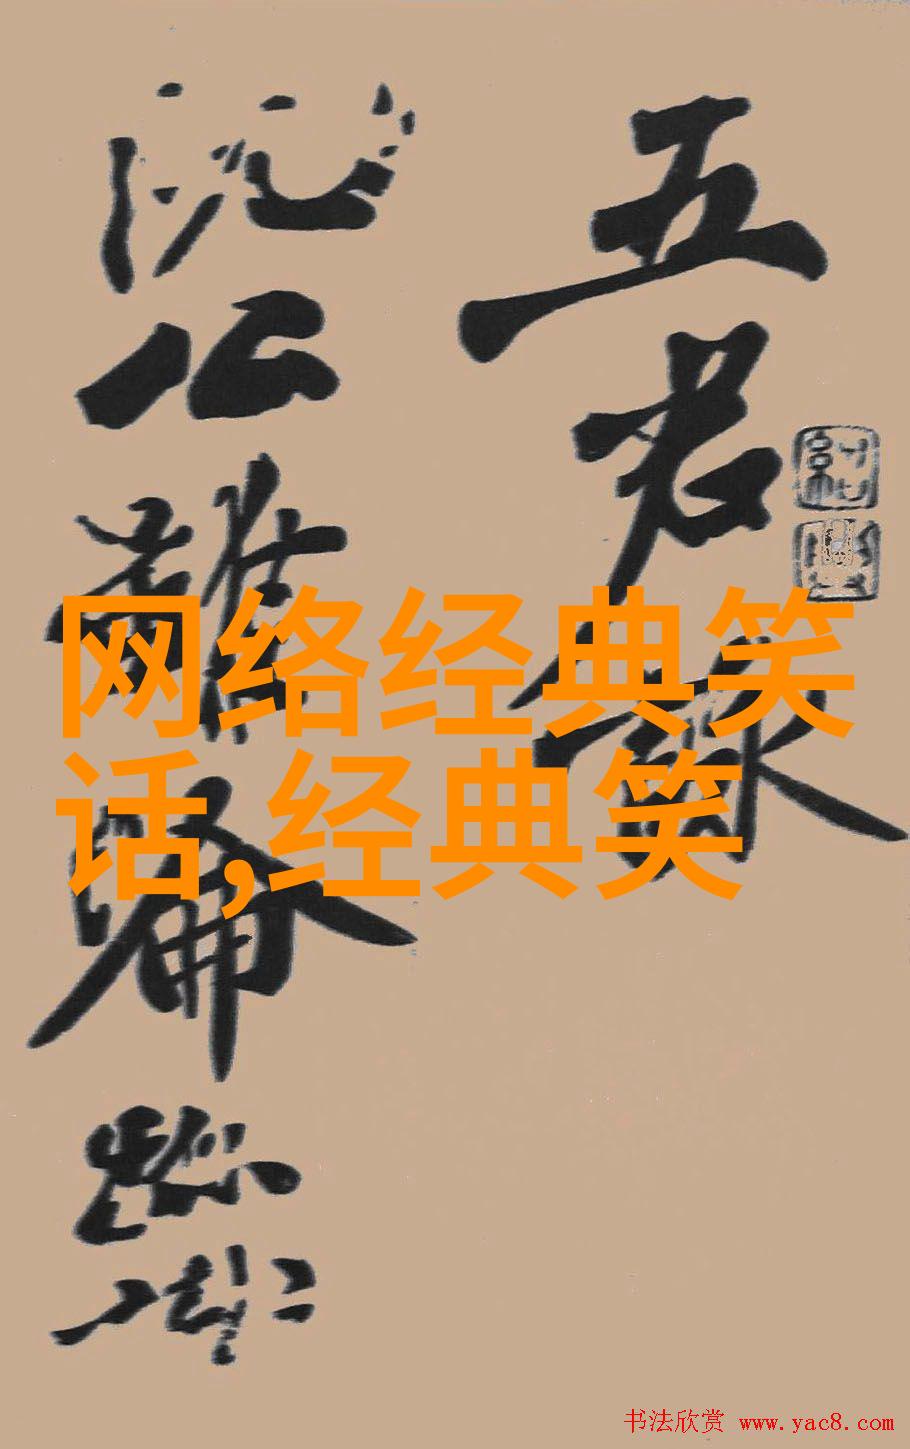 五君詠
阮公雖淪跡
网络经典笑
话,经典笑
书法欣赏 www.yac8.com